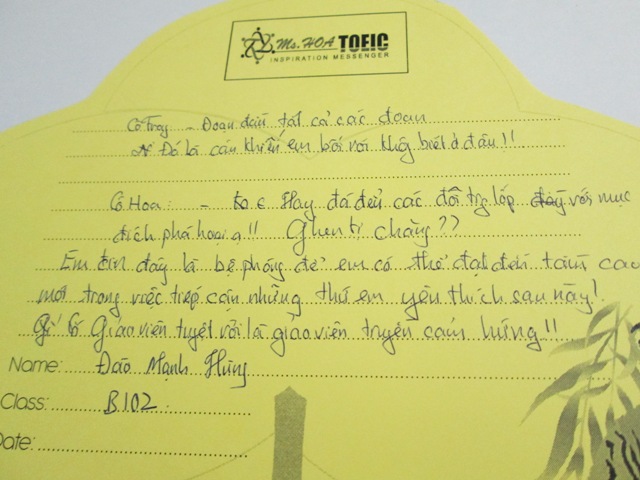 Ms. HOA TOEIC
INSPIRATION MESSENGER
Cô Tray - Đoạn đầu tất cả các đoạn
Đó là câu khiến em bối rối không biết ở đâu!!
Cô Hoa: - Hay đá đểu các đôi trg lớp với mục
đích phá hoại ạ!! Ghen tị chăng??
Em tin đây là bệ phóng để em có thể đạt đến tầm cao
mới trong việc tiếp cận những thứ em yêu thích sau này!
Giáo viên tuyệt vời là giáo viên truyền cảm hứng!!
Name: Đào Mạnh Hùng
Class: B102
Date: